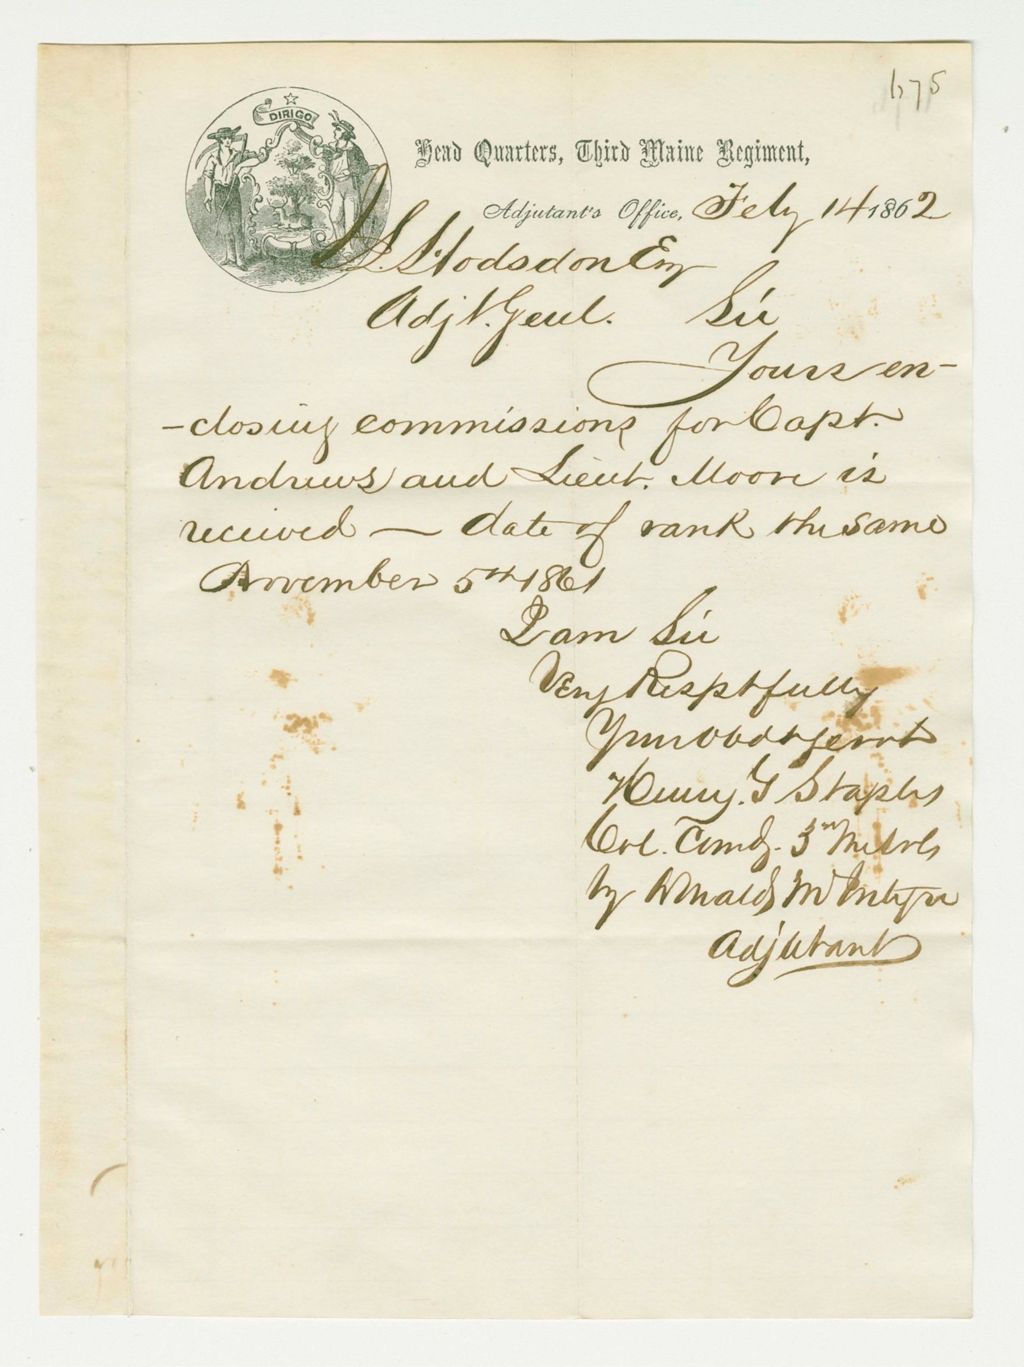 675
DIRIGO
Head Quarters, Third Maine Regiment,
Adjutant's Office, Feby 14 1862
J. L. Hodsdon Esq
Adjt. Genl. Sir
Yours en-
-closing commissions for Capt.
Andrews and Lieut. Moore is
received — date of rank the same
November 5th 1861
I am Sir
Very Resptfully
Your Obdt servt
Henry. G Staples
Col. Comdg. 3rd Me Vols
by Donald McIntyre
Adjutant